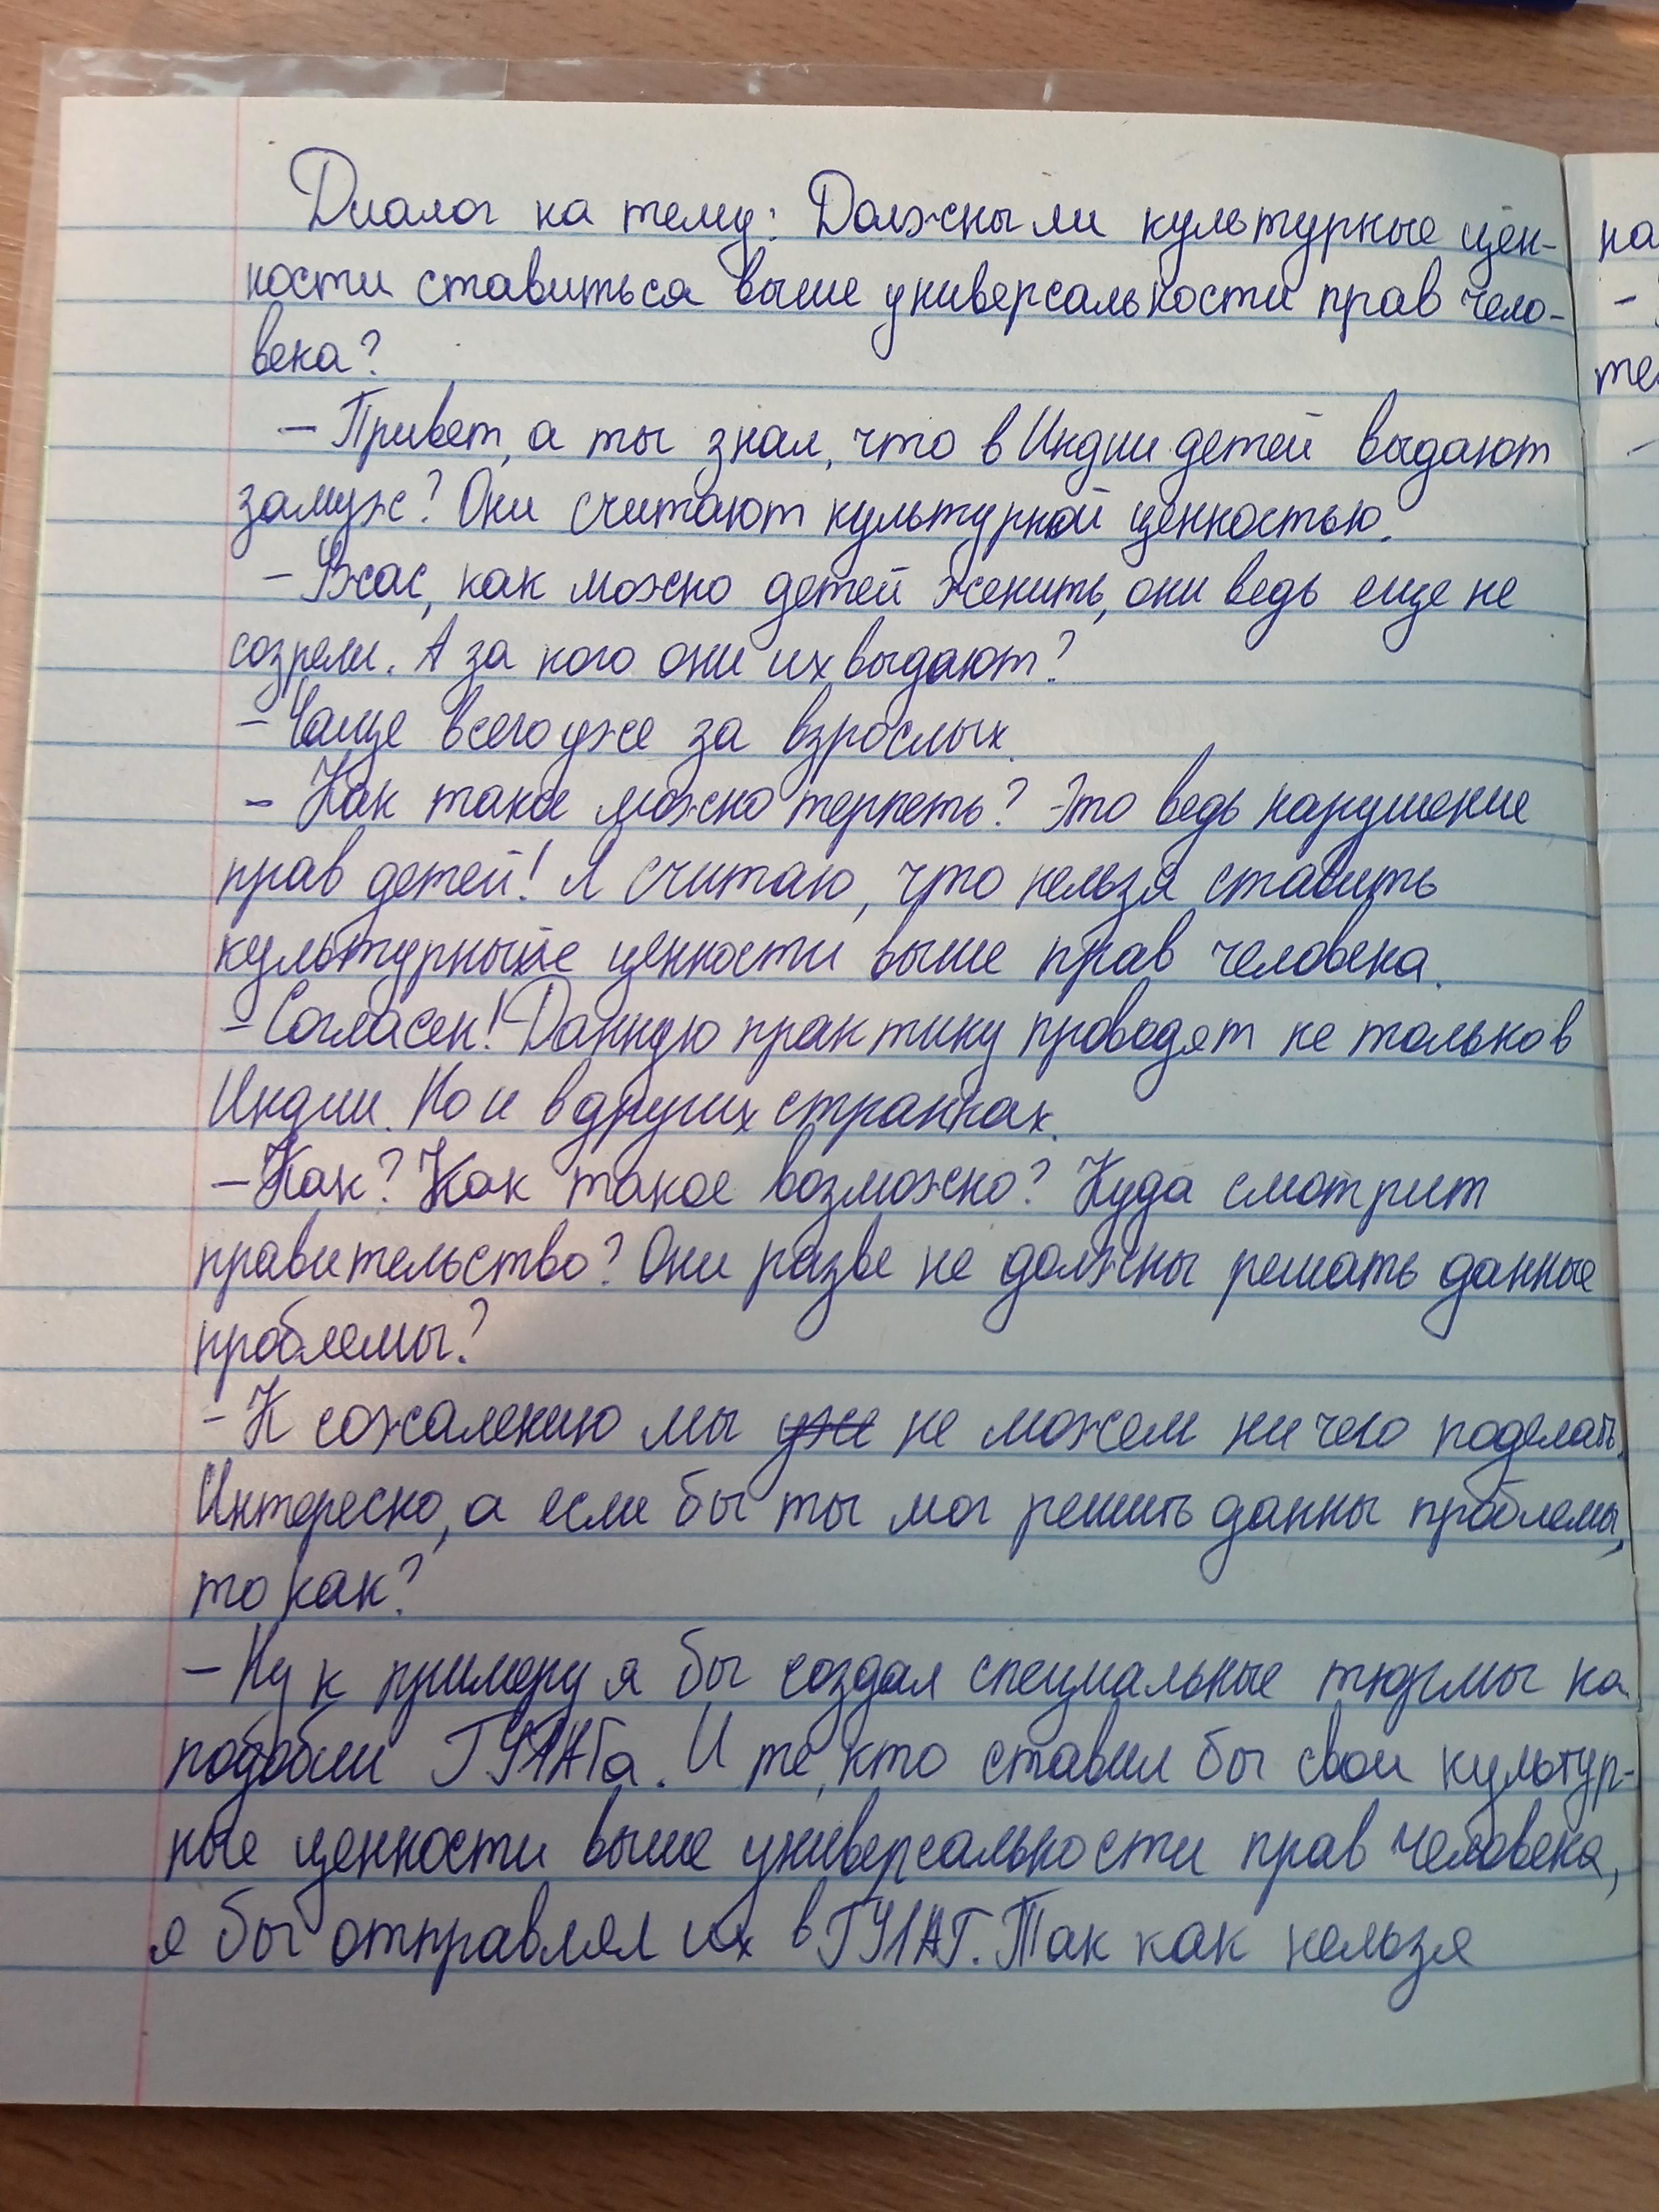 Диалог на тему: Должны ли культурные цен-
ности ставиться выше универсальности прав чело-
века?
- Привет, а ты знал, что в Индии детей выдают
замуж? Они считают культурной ценностью.
- Ужас, как можно детей женить, они ведь еще не
созрели. А за кого они их выдают?
- Чаще всего уже за взрослых.
- Как такое можно терпеть? Это ведь нарушение
прав детей! Я считаю, что нельзя ставить
культурныйе ценности выше прав человека.
- Согласен! Данную практику проводят не только в
Индии. Но и в других странах.
- Как? Как такое возможно? Куда смотрит
правительство? Они разве не должны решать данные
проблемы?
- К сожалению мы уже не можем ни чего поделать.
Интересно, а если бы ты мог решить данны проблемы,
то как?
- Ну к примеру я бы создал специальные тюрмы на
подобии ГУЛАГа. И те, кто ставил бы свои культур-
ные ценности выше универсальности прав человека,
я бы отправлял их в ГУЛАГ. Так как нельзя
на
-
те
-